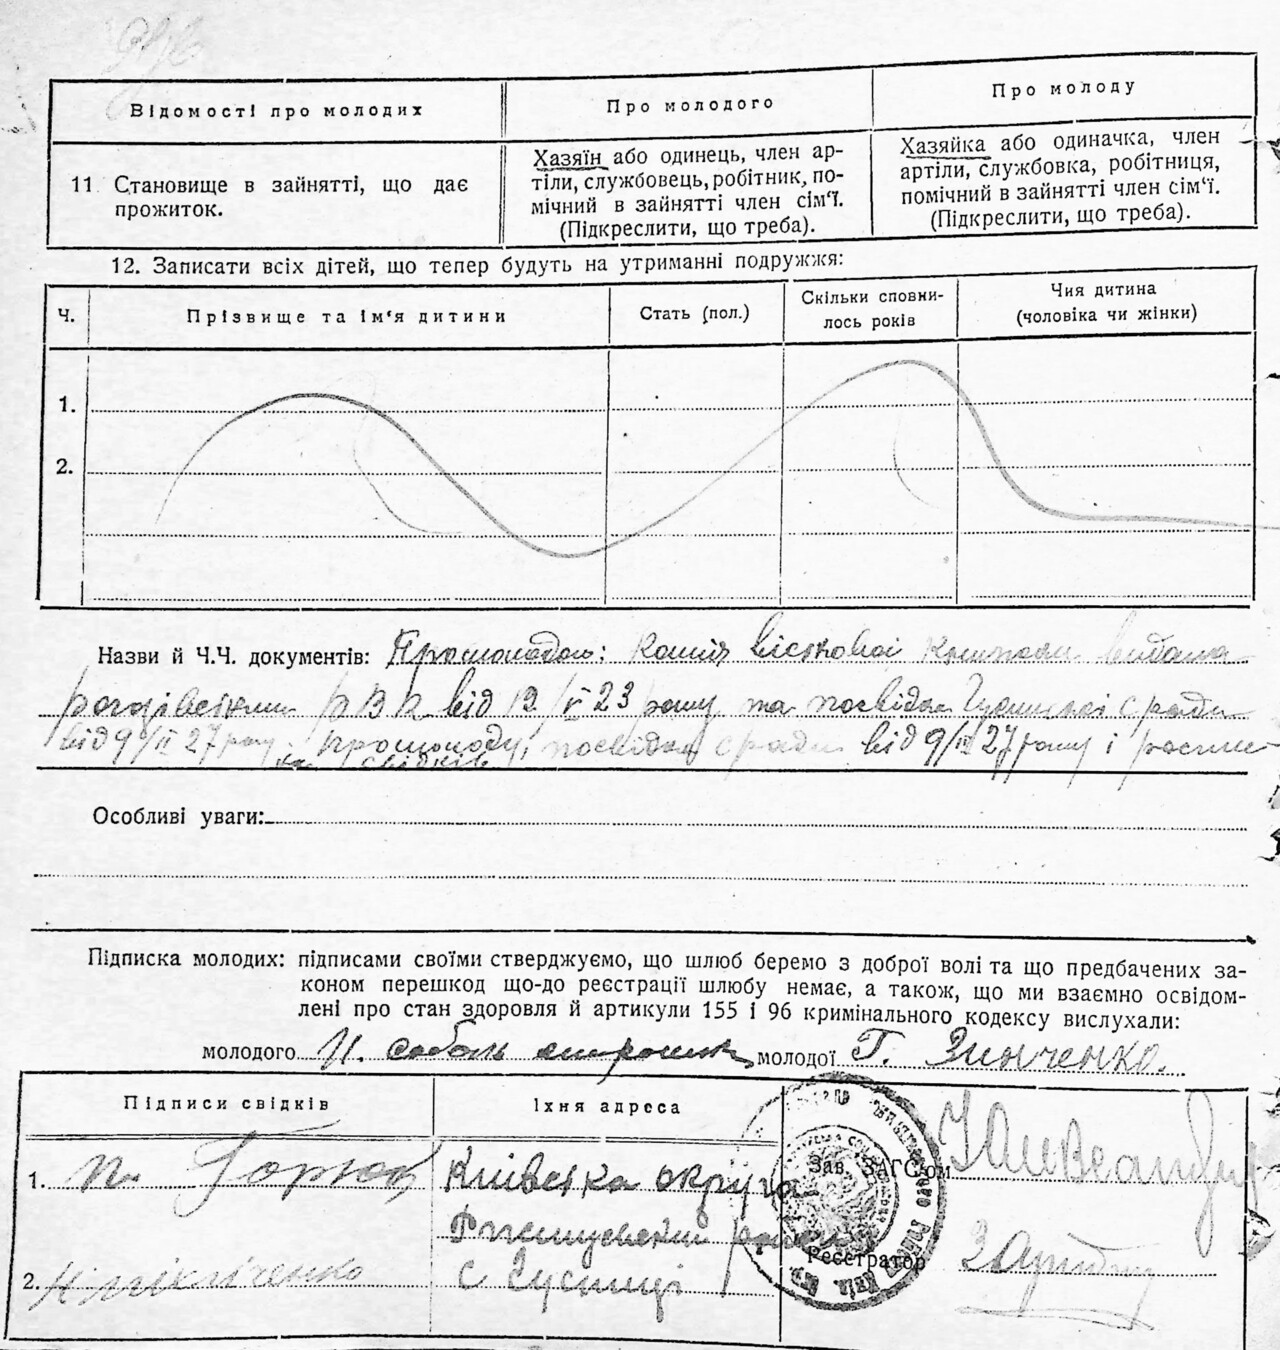 Відомості про молодих
Про молодого
Про молоду
11. Становище в зайнятті, що дає
прожиток.
Хазяїн або одинець, член ар-
тілі, службовець, робітник, по-
мічний в зайнятті член сім'ї.
(Підкреслити, що треба).
Хазяйка або одиначка, член
артіли, службовка, робітниця,
помічний в зайнятті член сім'ї.
(Підкреслити, що треба).
12. Записати всіх дітей, що тепер будуть на утриманні подружжя:
Ч.
Прізвище та ім'я дитини
Стать (пол.)
Скільки сповни-
лось років
Чия дитина
(чоловіка чи жінки)
1.
2.
Назви й Ч.Ч. документів: копія військової книжки видана
РВК від 19/V 23 року та посвідка сради
від 9/II 27 року. посвідка сради від 9/II 27 року і
свідків
Особливі уваги:
Підписка молодих: підписами своїми стверджуємо, що шлюб беремо з доброї волі та що предбачених за-
коном перешкод що-до реєстрації шлюбу немає, а також, що ми взаємно освідом-
лені про стан здоровля й артикули 155 і 96 кримінального кодексу вислухали:
молодого И. Соболь молодої Г. Зинченко.
Підписи свідків
Їхня адреса
1.
Київська округа
с
2.
Зав. ЗАГС'ом
Реєстратор